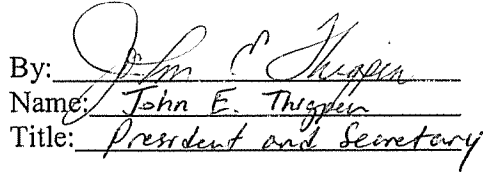 By: John E Thigpen
Name: John E. Thigpen
Title: President and Secretary